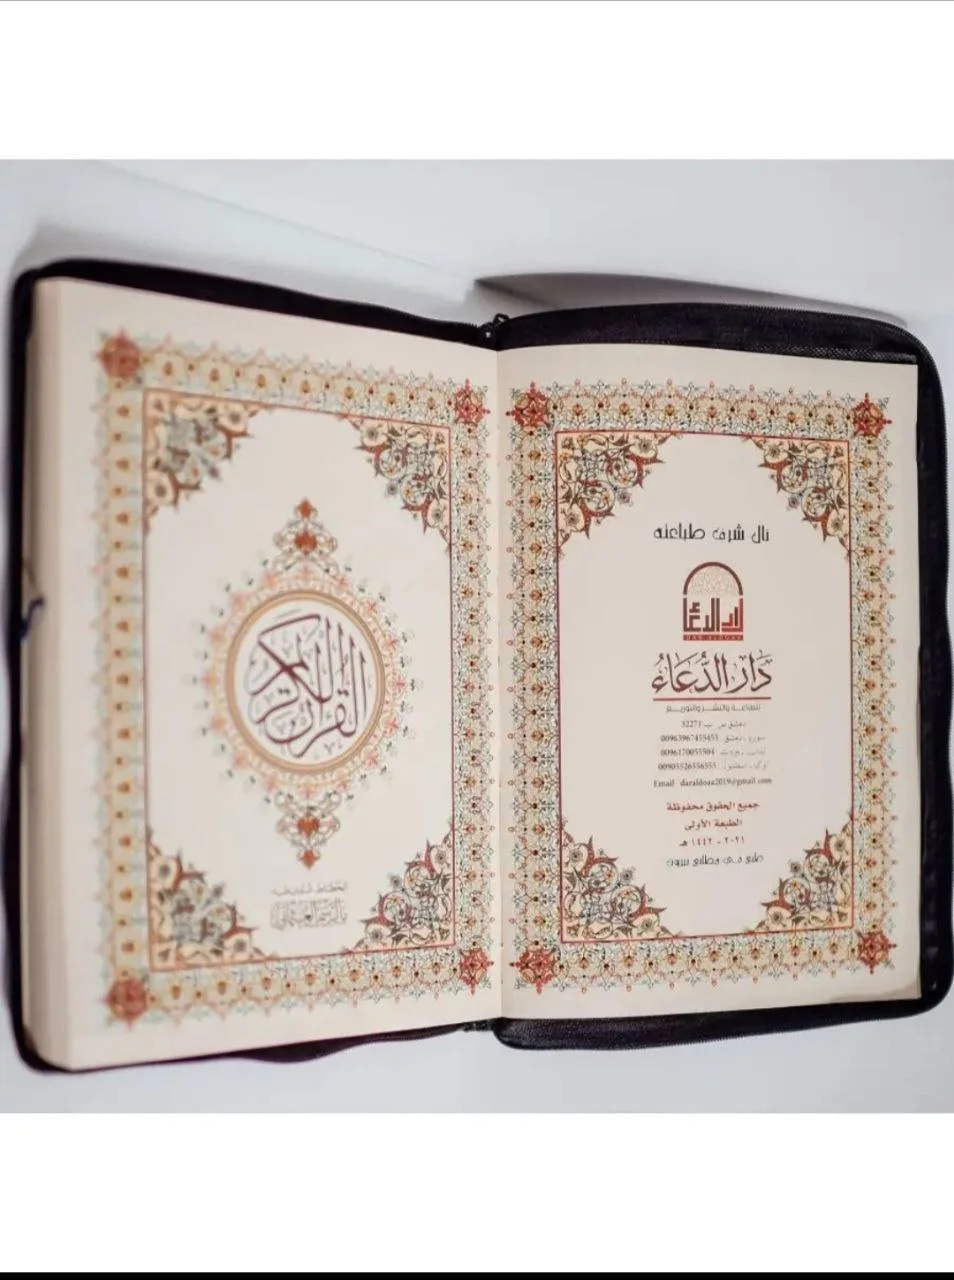 نال شرف طباعته
دار الدعاء
DAR ALDOAA
دَار الدُّعَاءُ
للطباعة والنشر والتوزيع
دمشق ص.ب 32271
سوريا - دمشق: 00963967455453
لبنان - بيروت: 0096170055504
تركيا - اسطنبول: 00905526556555
Email daraldoaa2019@gmail.com
جميع الحقوق محفوظة
الطبعة الأولى
٢٠٢١ - ١٤٤٢ هـ
طبع في مطابع بيروت
القرآن الكريم
الخطاط
بالرسم العثماني